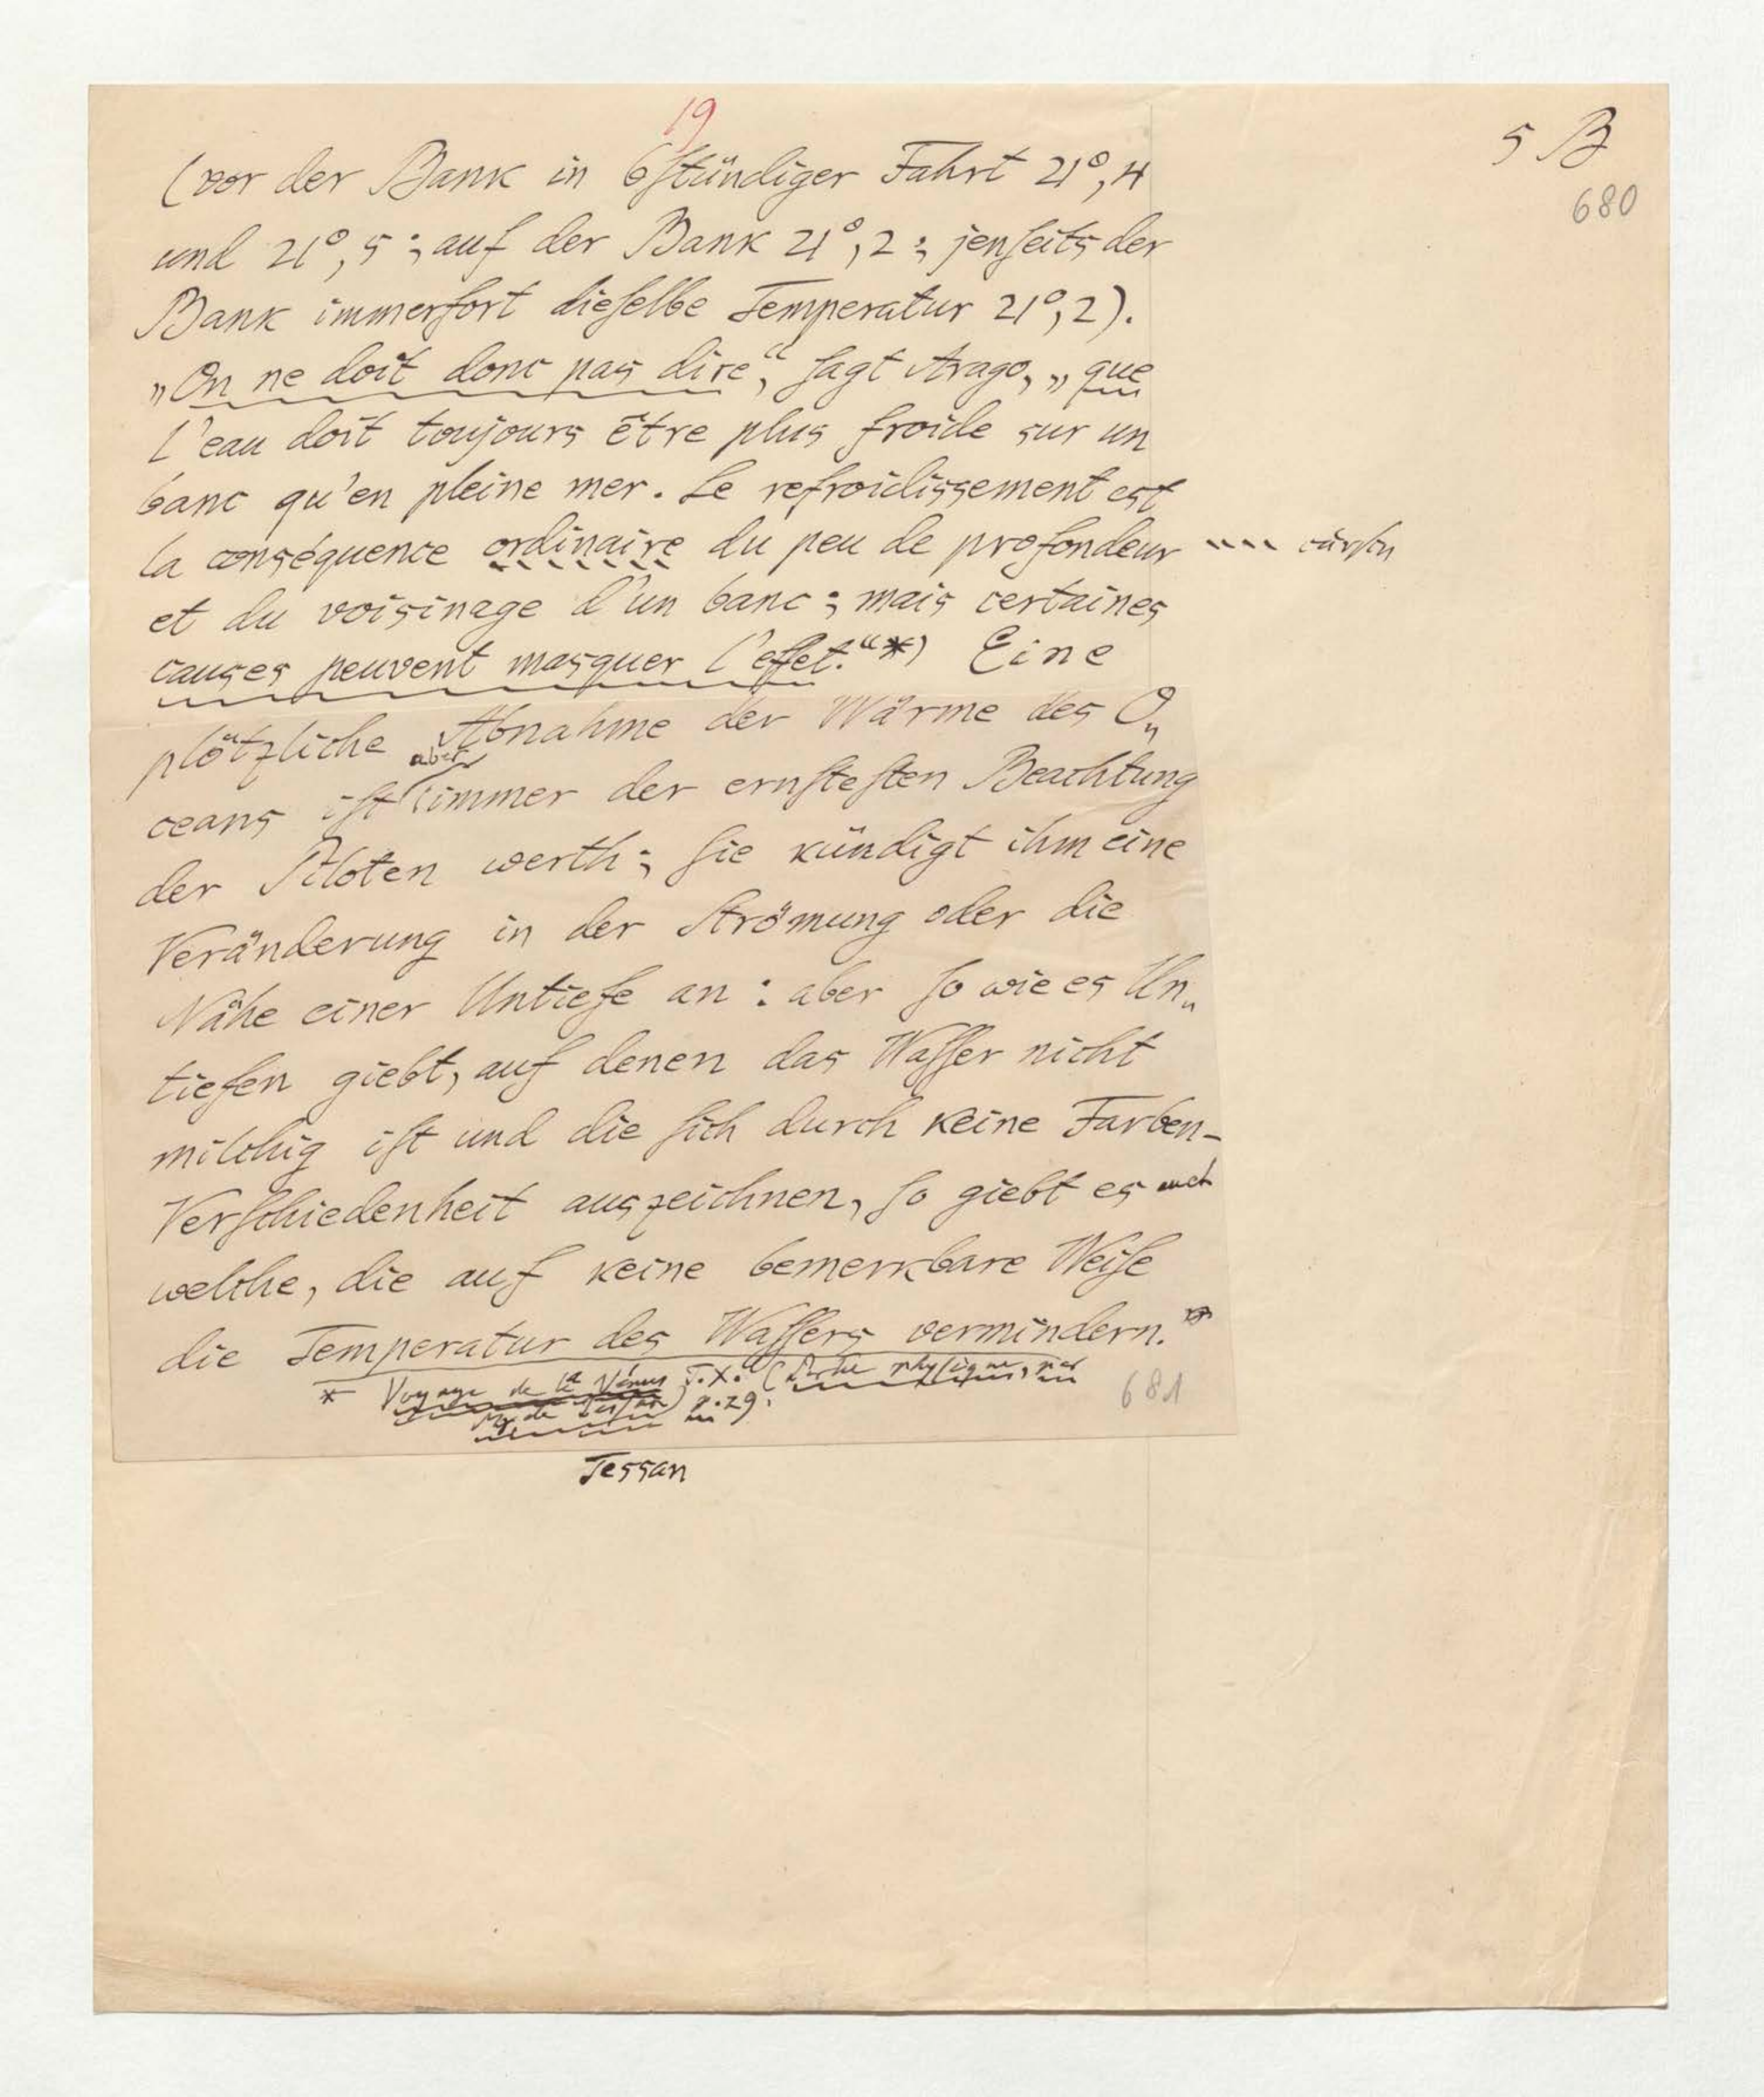 19
5 B
680
(vor der Bank in 6ſtündiger Fahrt 21°,4
und 21°,5; auf der Bank 21°,2; jenſeits der
Bank immerfort dieſelbe Temperatur 21°,2).
„On ne doit donc pas dire“, ſagt Arago, „que
l'eau doit toujours être plus froide sur un
banc qu'en pleine mer. Le refroidissement est
la conséquence ordinaire du peu de profondeur
et du voisinage d'un banc; mais certaines
causes peuvent masquer l'effet.“*) Eine
plötzliche Abnahme der Wärme des O„
aber
ceans iſt immer der ernſteſten Beachtung
der Piloten werth; ſie kündigt ihm eine
Veränderung in der Strömung oder die
Nähe einer Untiefe an: aber ſo wie es Un„
tiefen giebt, auf denen das Waſſer nicht
milchig iſt und die ſich durch keine Farben-
Verſchiedenheit auszeichnen, ſo giebt es auch
welche, die auf keine bemerkbare Weiſe
die Temperatur des Waſſers vermindern.
* Voyage de la Vénus T.X. (Partie phyſique, par
Mr de Teſſan) p.29.
681
Tessan